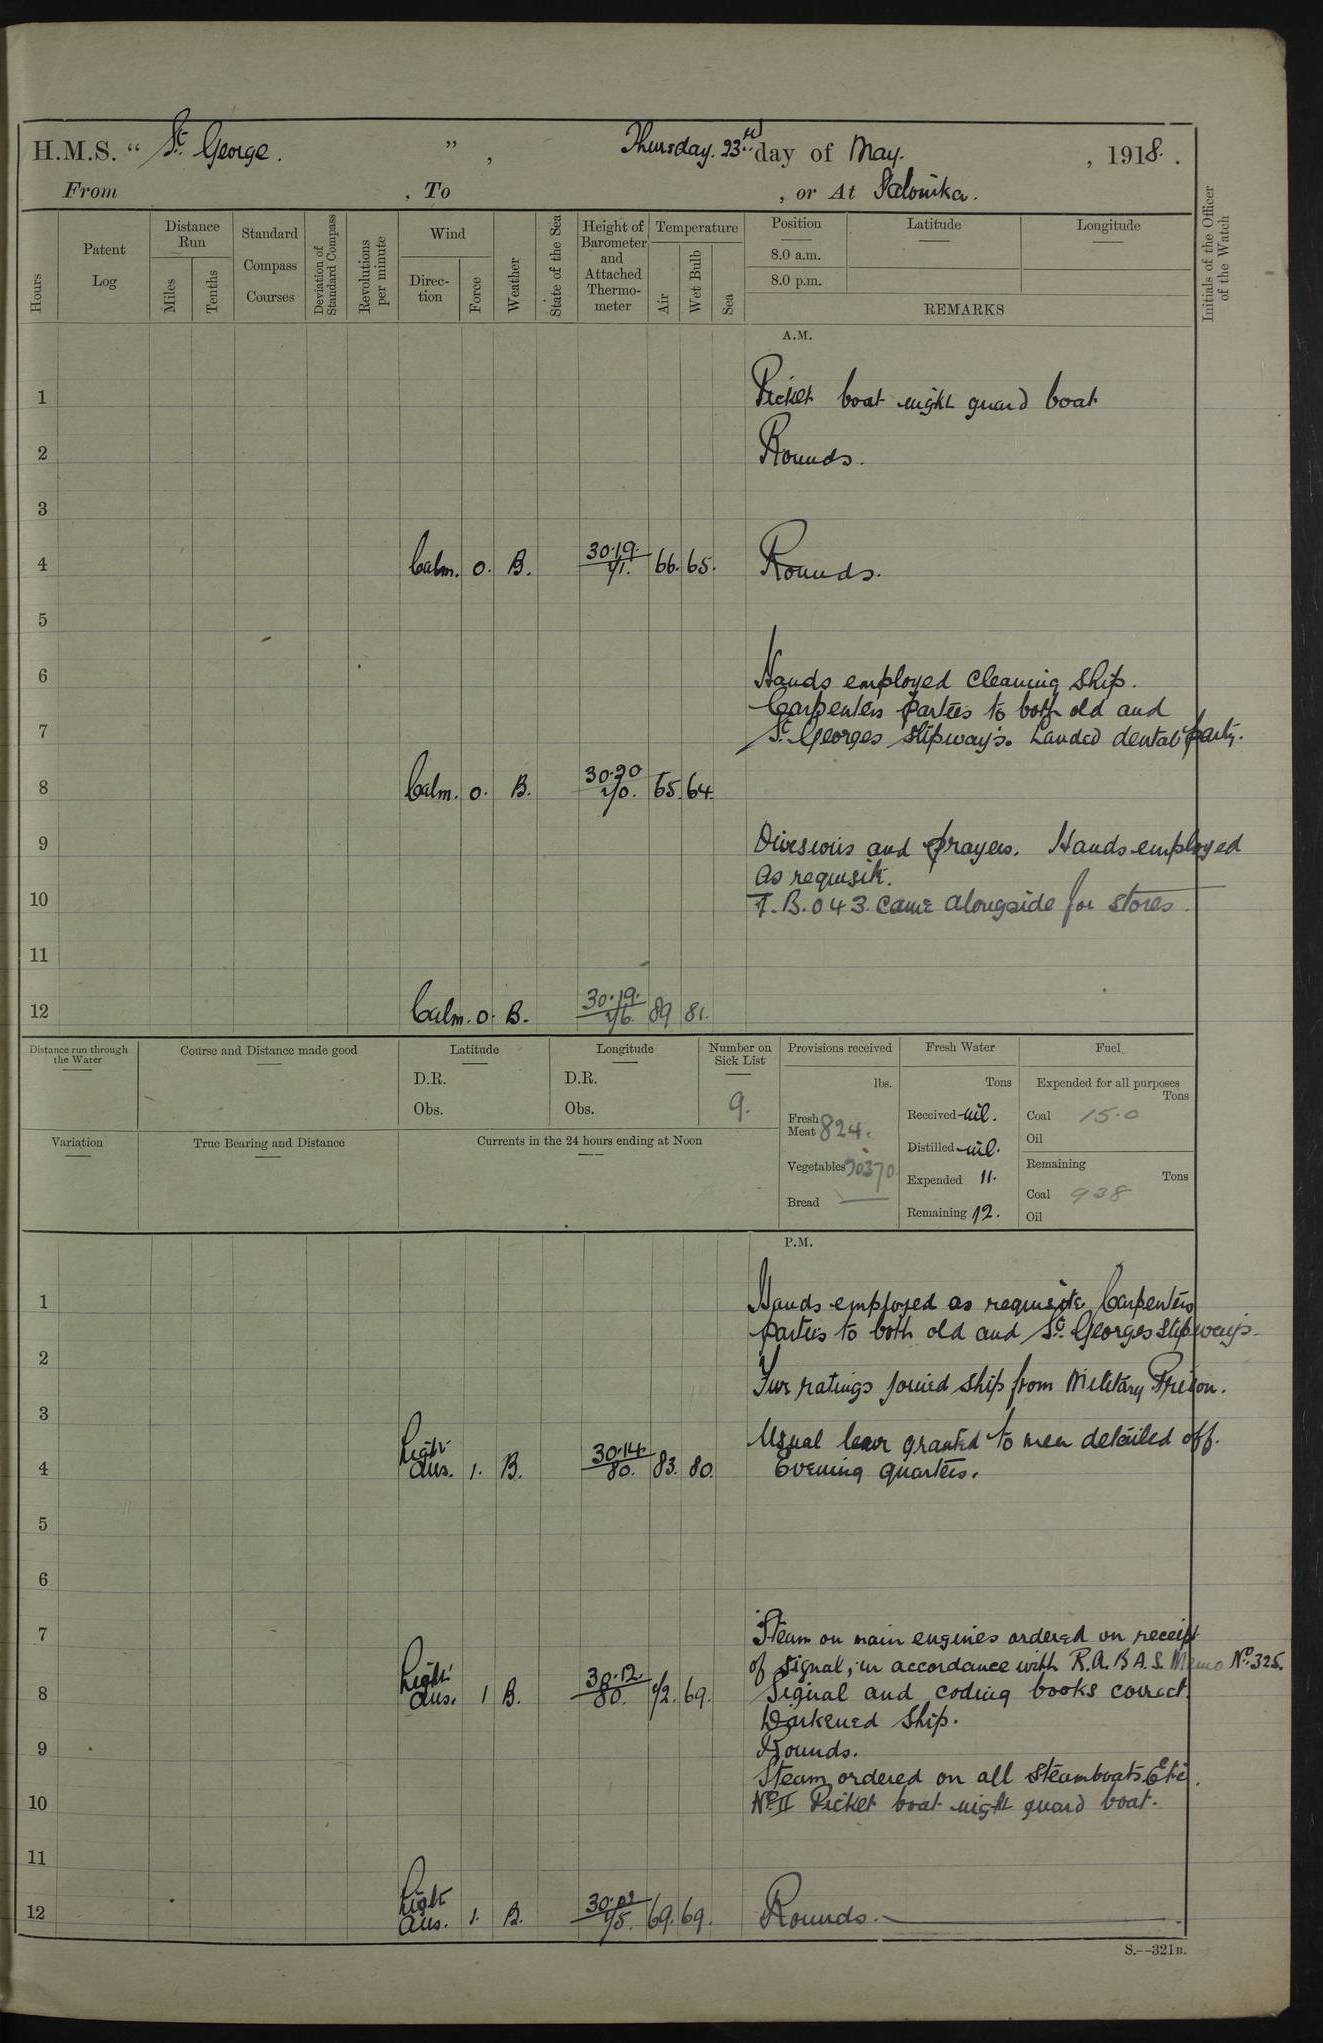 H.M.S. “ St. George. ” , Thursday. 23rd day of May. , 1918. .
From , To , or At Salonika.
Hours
Patent Log
Distance Run
Miles
Tenths
Standard Compass Courses
Deviation of Standard Compass
Revolutions per minute
Wind
Direction
Force
Weather
State of the Sea
Height of Barometer and Attached Thermometer
Temperature
Air
Wet Bulb
Sea
Position
8.0 a.m.
8.0 p.m.
Latitude
Longitude
REMARKS
Initials of the Officer of the Watch
A.M.
1 Picket boat night guard boat
2 Rounds.
3
4 Calm. 0. B. 30.19. 71. 66. 65. Rounds.
5
6 Hands employed cleaning ship.
Carpenters parties to both old and
7 St. Georges slipways. Landed dental party.
8 Calm. 0. B. 30.20 70. 65. 64.
9 Divisions and prayers. Hands employed
as requisite.
10 T.B. 043. came alongside for stores.
11
12 Calm. 0. B. 30.19. 76. 89 81.
Distance run through the Water
Course and Distance made good
Latitude
D.R.
Obs.
Longitude
D.R.
Obs.
Number on Sick List
9.
Provisions received
lbs.
Fresh Meat 824.
Vegetables
Bread —
Fresh Water
Tons
Received nil.
Distilled nil.
Expended 11.
Remaining 12.
Fuel
Expended for all purposes
Tons
Coal 15.0
Oil
Remaining
Tons
Coal 938
Oil
Variation
True Bearing and Distance
Currents in the 24 hours ending at Noon
P.M.
1 Hands employed as requisite Carpenters
parties to both old and St. Georges slipways.
2 ratings joined ship from Military Prison.
3 Usual leave granted to men detailed off.
4 Light airs. 1. B. 30.14. 80. 83. 80. Evening quarters.
5
6
7 Steam on main engines ordered on receipt
of signal, in accordance with R.A.B.A.S. Memo No. 325.
8 Light airs. 1 B. 30.12. 80. 72. 69. Signal and coding books correct.
Darkened ship.
9 Rounds.
Steam ordered on all steamboats Etc.
10 No. II Picket boat night guard boat.
11
12 Light airs. 1. B. 75. 69. 69. Rounds.
S.--321B.